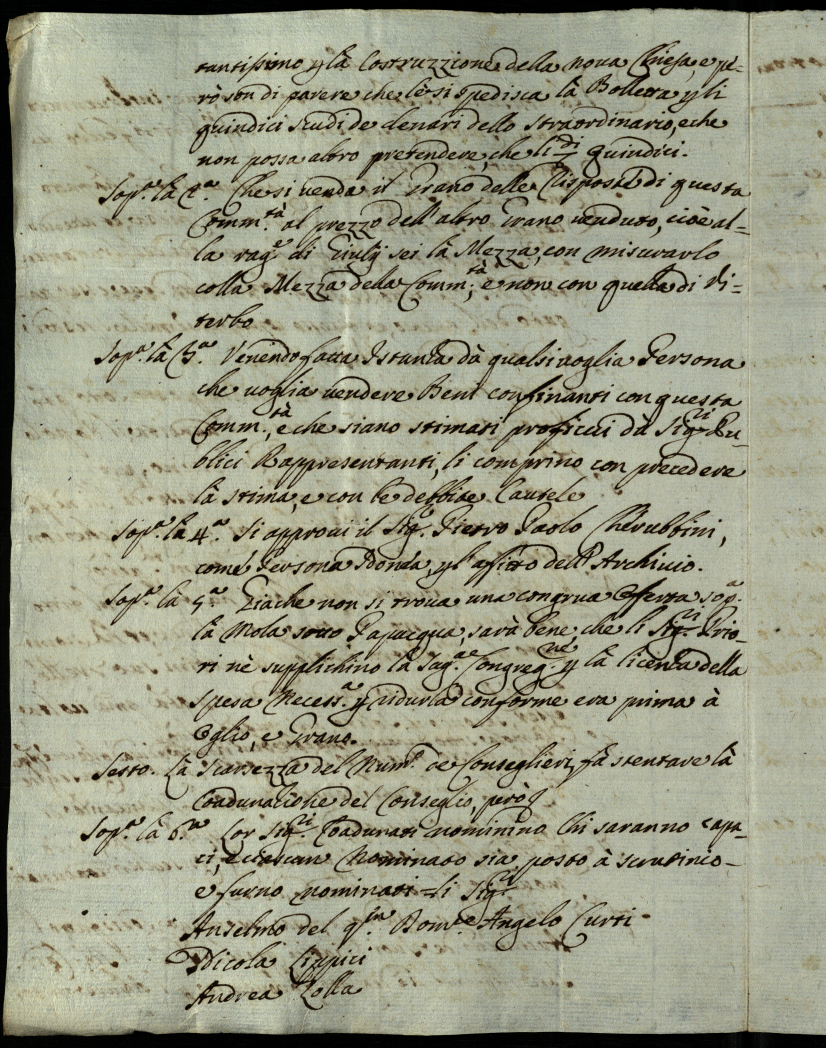 tantissimo p la Costruzzione della nova Chiesa, e pe-
rò son di parere che le si spedisca là Bolletta p li
quindici scudi de denari dello straordinario, e che
non possa altro pretendere, che li di quindici.
Sop.ª là 2.ª Che si venda il Grano delle Risposte di questa
Comm.tà al prezzo dell'altro Grano venduto, cioè al-
la rag.e di Giulij sei la Mezza, con misurarlo
colla Mezza della Comm.tà, e non con quella di Vi-
terbo
Sop.ª là 3.ª Venendo fatta Istanza dà qualsivoglia Persona
che voglia vendere Beni confinanti con questa
Comm.tà, e che siano stimati proficui dà Sig.ri Pu-
blici Rappresentanti, li comprino con precedere
là stima, e con le debbite Cautele
Sop.ª là 4.ª Si approvi il Sig.r Pietro Paolo Cherubbini,
come Persona Idonea, p l'affitto dell'Archivio.
Sop.ª là 5.ª Giache non si trova una congrua offerta sop.ª
là Mola sotto Papacqua, sarà bene, che li Sig.ri Prio-
ri nè supplichino la Sag.ª Congreg.ne p là licenza della
spesa Necess.ª p ridurla conforme era prima à
Oglio, e Grano.
Sesto. Là Scarsezza del Num.o de Conseglieri, fà stentare là
Coadunatione del Conseglio, però
Sop.ª là 6.ª Lor Sig.ri Coadunati nominino Chi saranno capa-
ci, e ciascun Nominato sia posto à scrutinio-
e furno nominati li Sig.ri
Anselmo del q.m Dom.co Angelo Curti
Nicola
Andrea Zolla